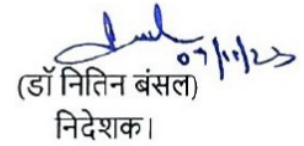 07/11/23
(डॉ नितिन बंसल)
निदेशक।